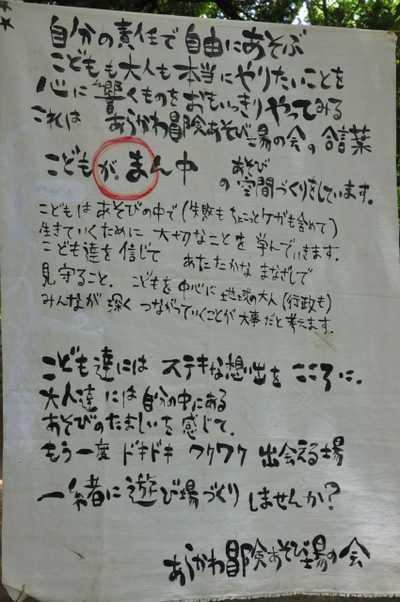 自分の責任で自由にあそぶ
こどもも大人も本当にやりたいことを
心に響くものをおもいっきりやってみる
これは あらかわ冒険あそび場の会の合言葉
こどもが、まん中 あそび
の空間づくりをしています。
こどもはあそびの中で(失敗もちょことケガも含めて)
生きていくために 大切なことを学んでいきます。
こども達を信じて あたたかなまなざしで
見守ること。 こどもを中心に地域の大人(行政も)
みんなが深くつながっていくことが大事だと考えます。
こども達には ステキな想い出をこころに。
大人達には自分の中にある
あそびのたましいを感じて。
もう一度 ドキドキ ワクワク 出会える場
一緒に遊び場づくりしませんか?
あらかわ冒険あそび場の会